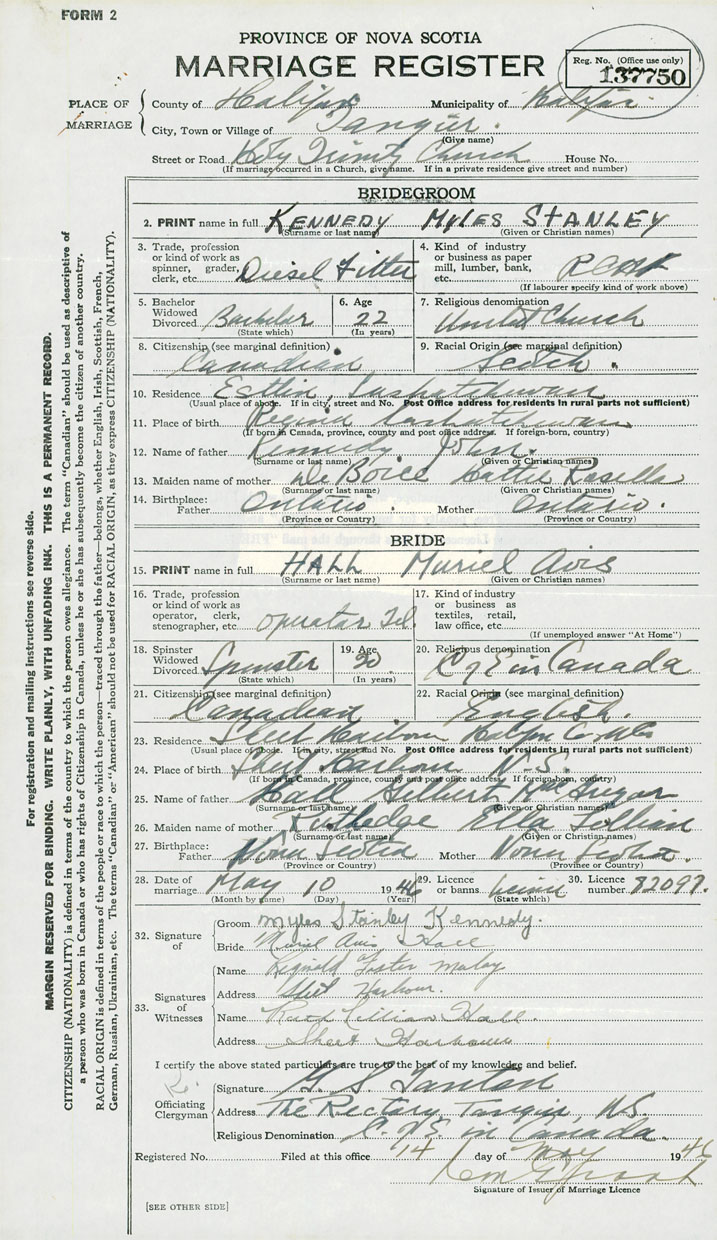 FORM 2
PROVINCE OF NOVA SCOTIA
MARRIAGE REGISTER
Reg. No. (Office use only)
137750
PLACE OF MARRIAGE
County of Halifax Municipality of Halifax
City, Town or Village of Tangier.
(Give name)
Street or Road Holy Trinity Church House No.
(If marriage occurred in a Church, give name. If in a private residence give street and number)
BRIDEGROOM
2. PRINT name in full KENNEDY MYLES STANLEY
(Surname or last name) (Given or Christian names)
3. Trade, profession or kind of work as spinner, grader, clerk, etc. Diesel Fitter
4. Kind of industry or business as paper mill, lumber, bank, etc.
(If labourer specify kind of work above)
5. Bachelor Widowed Divorced Bachelor
(State which)
6. Age 22
(In years)
7. Religious denomination United Church
8. Citizenship (see marginal definition) Canadian
9. Racial Origin (see marginal definition) Scotch.
10. Residence Estlin, Saskatchewan
(Usual place of abode. If in city, street and No. Post Office address for residents in rural parts not sufficient)
11. Place of birth Regina Saskatchewan
(If born in Canada, province, county and post office address. If foreign-born, country)
12. Name of father Kennedy John.
(Surname or last name) (Given or Christian names)
13. Maiden name of mother De Boice Hattie Rosella
(Surname or last name) (Given or Christian names)
14. Birthplace: Father Ontario. Mother Ontario.
(Province or Country) (Province or Country)
BRIDE
15. PRINT name in full HALL Muriel Avis
(Surname or last name) (Given or Christian names)
16. Trade, profession or kind of work as operator, clerk, stenographer, etc. operator Tel.
17. Kind of industry or business as textiles, retail, law office, etc.
(If unemployed answer "At Home")
18. Spinster Widowed Divorced Spinster
(State which)
19. Age 20
(In years)
20. Religious denomination C of E in Canada
21. Citizenship (see marginal definition) Canadian
22. Racial Origin (see marginal definition) English.
23. Residence Sheet Harbour Halifax Co. NS
(Usual place of abode. If in city, street and No. Post Office address for residents in rural parts not sufficient)
24. Place of birth Sheet Harbour N.S.
(If born in Canada, province, county and post office address. If foreign-born, country)
25. Name of father Hall Gilbert McGregor
(Surname or last name) (Given or Christian names)
26. Maiden name of mother Rutledge Ella Lillian
(Surname or last name) (Given or Christian names)
27. Birthplace: Father Nova Scotia Mother Nova Scotia.
(Province or Country) (Province or Country)
28. Date of marriage May 10 1946
(Month by name) (Day) (Year)
29. Licence or banns licence
30. Licence number 82097.
32. Signature of
Groom Myles Stanley Kennedy.
Bride Muriel Avis Hall
33. Signatures of Witnesses
Name Reginald Foster
Address Sheet Harbour.
Name Lillian Hall.
Address Sheet Harbour
I certify the above stated particulars are true to the best of my knowledge and belief.
Officiating Clergyman
Signature G. S. Tanton
Address The Rectory, Tangier, N.S.
Religious Denomination C. of E. in Canada.
Registered No. Filed at this office 14 day of May 1946
Signature of Issuer of Marriage Licence
[SEE OTHER SIDE]
For registration and mailing instructions see reverse side.
MARGIN RESERVED FOR BINDING. WRITE PLAINLY, WITH UNFADING INK. THIS IS A PERMANENT RECORD.
CITIZENSHIP (NATIONALITY) is defined in terms of the country to which the person owes allegiance. The term "Canadian" should be used as descriptive of
a person who was born in Canada or who has rights of Citizenship in Canada, unless he or she has subsequently become the citizen of another country.
RACIAL ORIGIN is defined in terms of the people or race to which the person—traced through the father—belongs, whether English, Irish, Scottish, French,
German, Russian, Ukrainian, etc. The terms "Canadian" or "American" should not be used for RACIAL ORIGIN, as they express CITIZENSHIP (NATIONALITY).